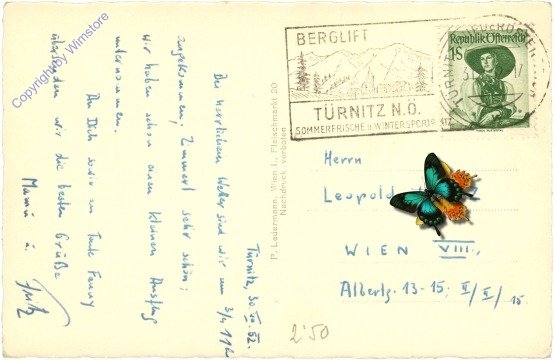 BERGLIFT
TÜRNITZ N.Ö.
SOMMERFRISCHE u WINTERSPORT
Republik Österreich
1S
Türnitz, 30. VII. 52.
Bei herrlichem Wetter sind wir um 3/4 11h
angekommen, Zimmerl sehr schön;
wir haben schon einen kleinen Ausflug
unternommen.
An Dich sowie an Tante Fanny
übersenden wir die besten Grüße
Mama u.
Fritz
P. Ledermann, Wien I., Fleischmarkt 20
Nachdruck verboten
Herrn
Leopold
WIEN VIII.,
Albertg. 13-15. II/II/15
2'50
Copyright by Wimstore